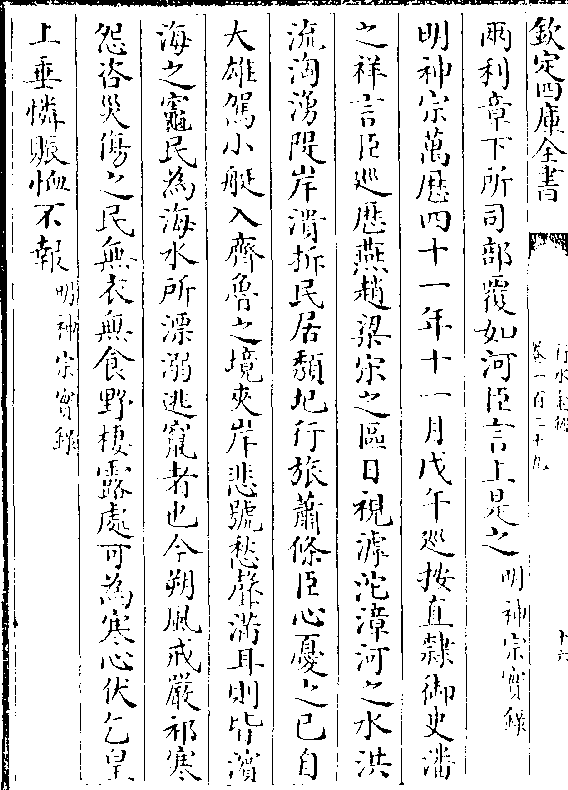 欽定四庫全書
行水金鑑
卷一百二十九
十六
兩利章下所司部覆如河臣言上是之明神宗實錄
明神宗萬歷四十一年十一月戊午巡按直隸御史潘
之祥言臣巡歷燕趙梁宋之區日視滹沱漳河之水洪
流洶湧隄岸潰拆民居頽圮行旅蕭條臣心憂之已自
大雄駕小艇入齊魯之境夾岸悲號愁聲滿耳則皆濱
海之竈民為海水所漂溺逃竄者也今朔風戒嚴祁寒
怨咨災傷之民無衣無食野棲露處可為寒心伏乞皇
上垂憐賑恤不報明神宗實錄